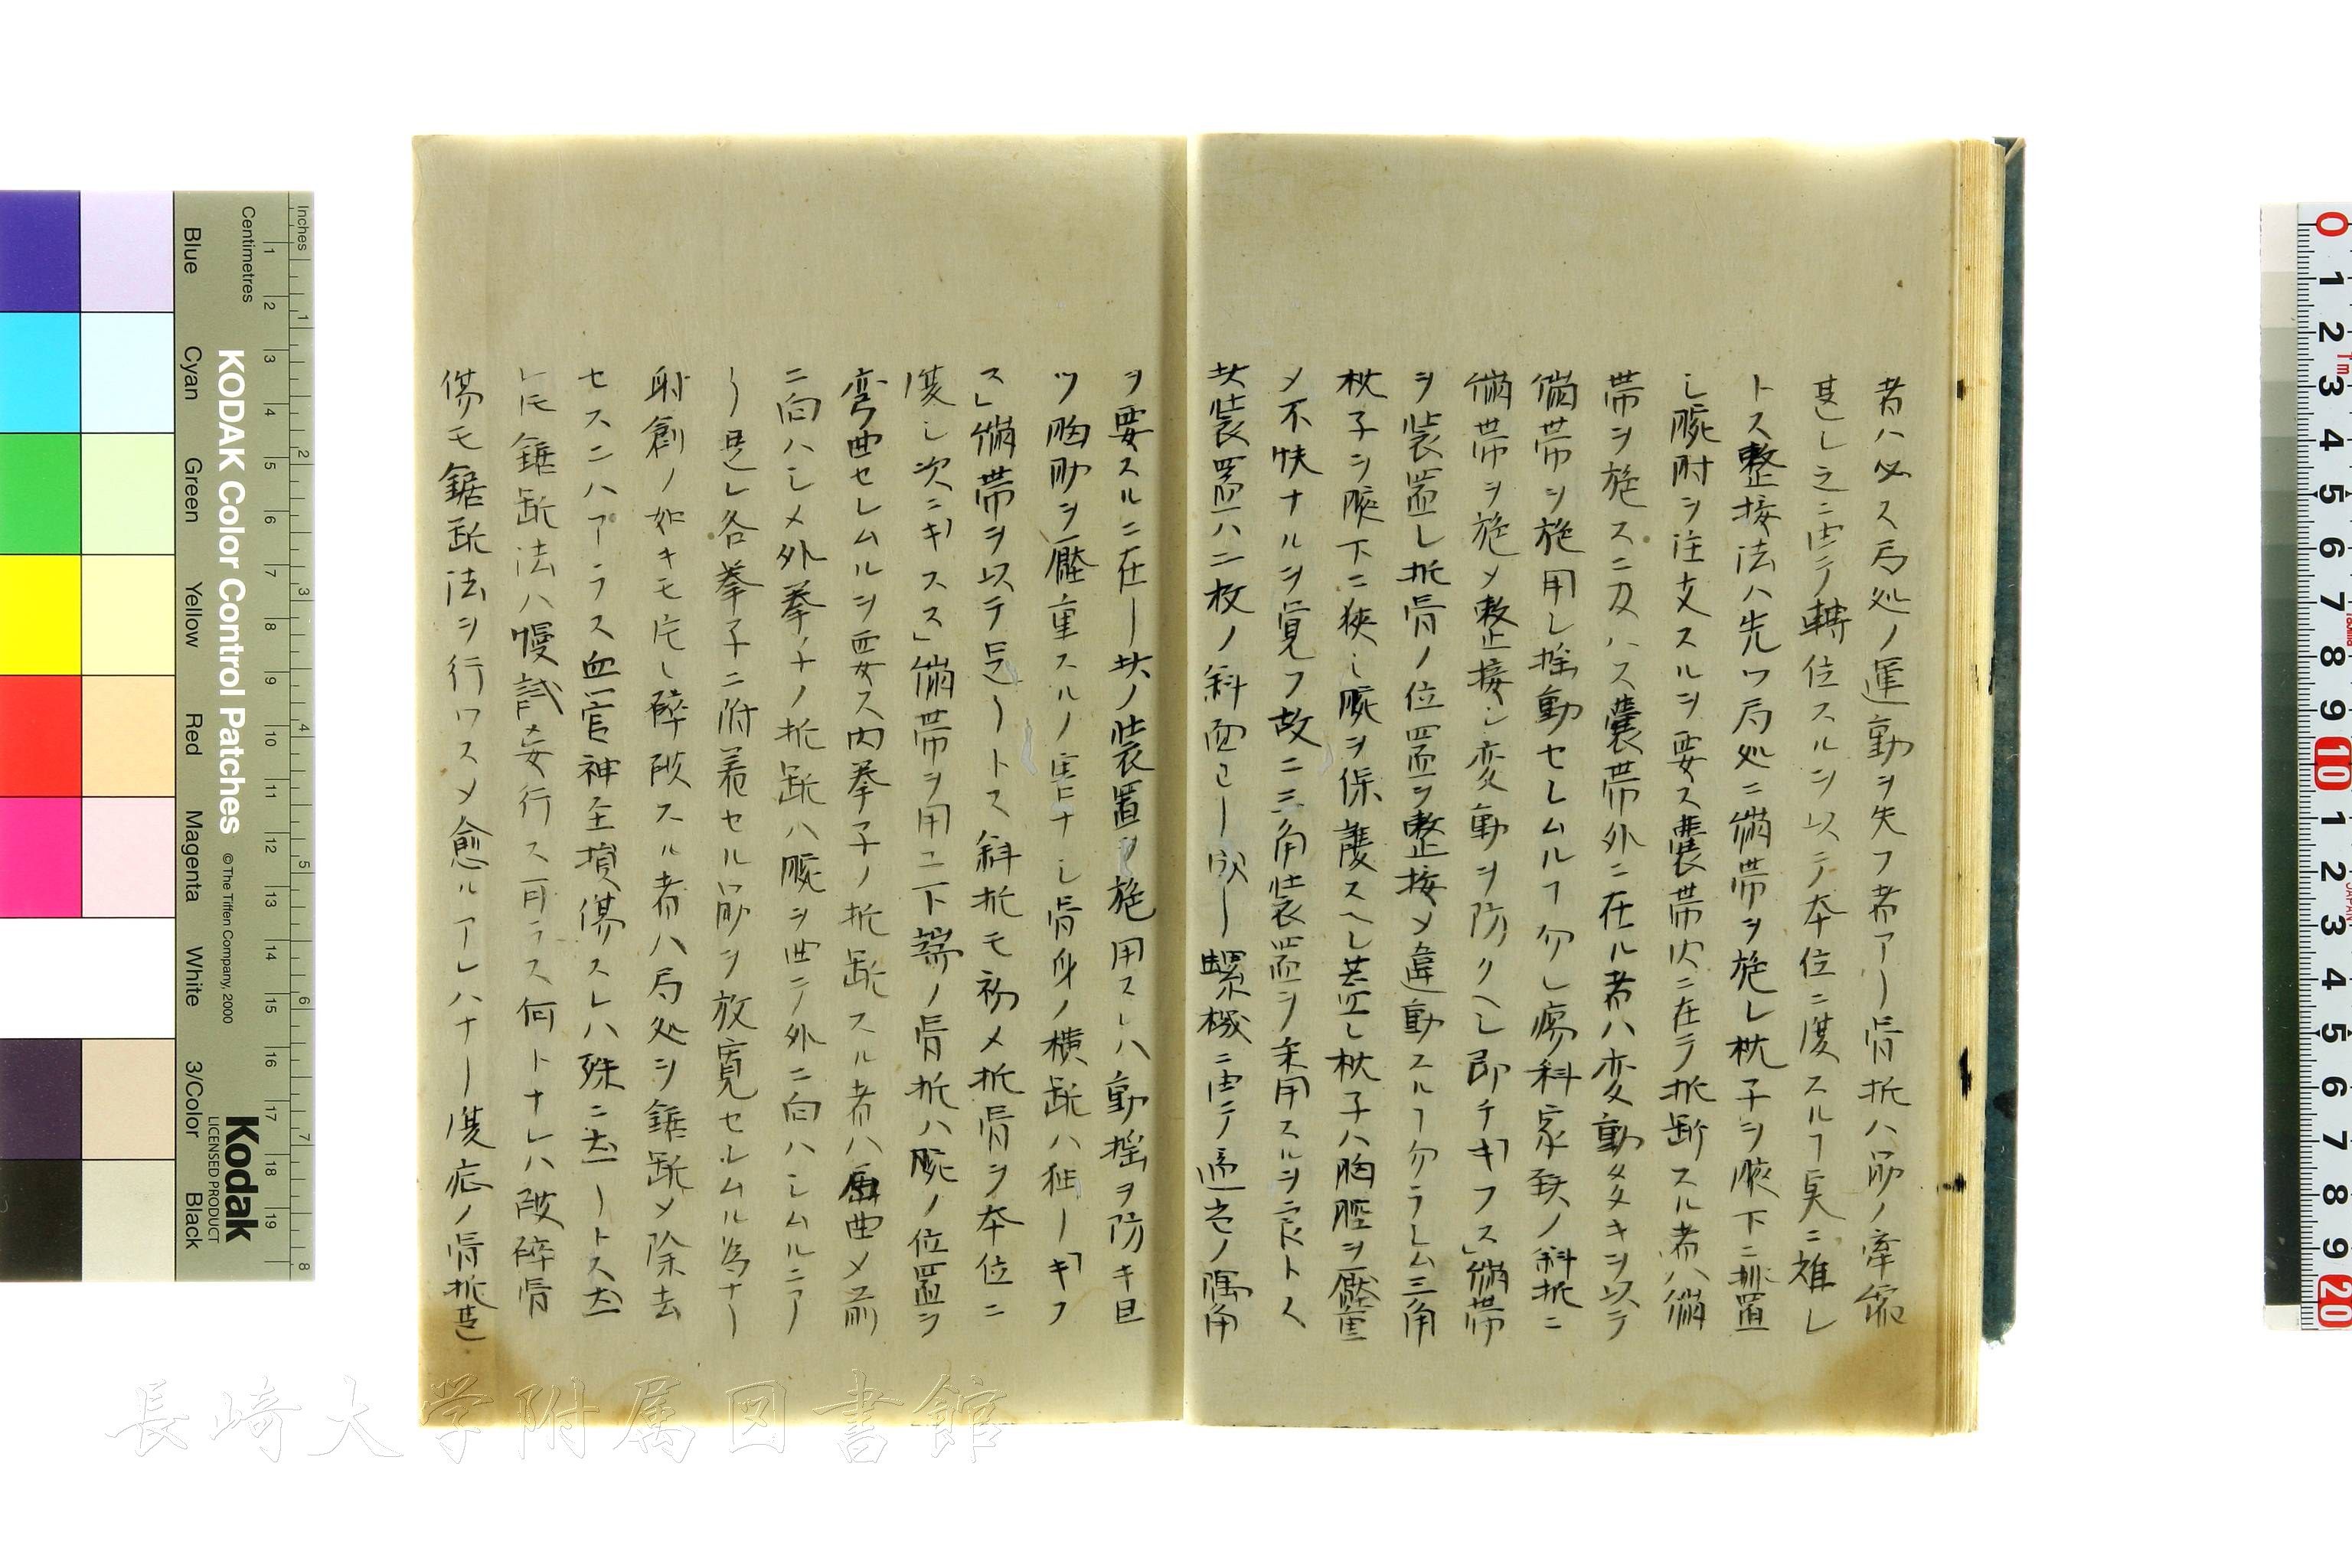 者ハ必ス局処ノ運動ヲ失フ者アリ骨折ハ筋ノ牽縮
甚シ之ニ由テ轉位スルヲ以テ本位ニ復スルヿ臭ニ難シ
トス整接法ハ先ツ局処ニ繃帯ヲ施シ枕子ヲ腋下ニ挑置
シ腕肘ヲ注支スルヲ要ス囊帯内ニ在テ折断スル者ハ繃
帯ヲ施スニ及ハス囊帯外ニ在ル者ハ変動多キヲ以テ
繃帯ヲ施用シ揺動セシムルヿ勿レ瘍科家鉄ノ斜折ニ
繃帯ヲ施メ整接シ変動ヲ防クヘシ即チギフス」繃帯
ヲ装置シ折骨ノ位置ヲ整接メ違動スルヿ勿ラシム三角
枕子ヲ腋下ニ狹ミ腕ヲ保護スヘシ若シ枕子ハ胸膛ヲ壓重
メ不快ナルヲ覚フ故ニ三角装置ヲ采用スルヲ良トス
其装置ハ二枚ノ斜面ヨリ成リ螺機ニ由テ適宜ノ隅角
ヲ要スルニ在リ其ノ装置ヲ施用スレハ動揺ヲ防キ且
ツ胸肋ヲ壓重スルノ害ナシ骨身ノ横断ハ独リギフ
ス」繃帯ヲ以テ足リトス斜折モ初メ折骨ヲ本位ニ
復シ次ニギスス」繃帯ヲ用ユ下端ノ骨折ハ腕ノ位置ヲ
弯曲セシムルヲ要ス内拳子ノ折断スル者ハ屈曲メ前
ニ向ハシメ外拳子ノ折断ハ腕ヲ曲テ外ニ向ハシムルニア
リ是レ各拳子ニ附着セル筋ヲ放寛セシムル為ナリ
射創ノ如キモ砕敗スル者ハ局処ヲ鋸断メ除去
セスニハアラス血管神圣損傷スレハ殊ニ然リトス然
レ𪜈鋸断法ハ慢試妄行ス可ラス何トナレハ敗碎骨
傷モ鋸断法ヲ行ワスメ愈ルアレハナリ復症ノ骨折甚
KODAK Color Control Patches
© The Tiffen Company, 2000
Kodak
LICENSED PRODUCT
Inches
Centimetres
Blue
Cyan
Green
Yellow
Red
Magenta
White
3/Color
Black
1 2 3 4 5 6 7 8 9 10 11 12 13 14 15 16 17 18 19
1 2 3 4 5 6 7 8
0 1 2 3 4 5 6 7 8 9 10 1 2 3 4 5 6 7 8 9 20
JAPAN
長崎大学附属図書館